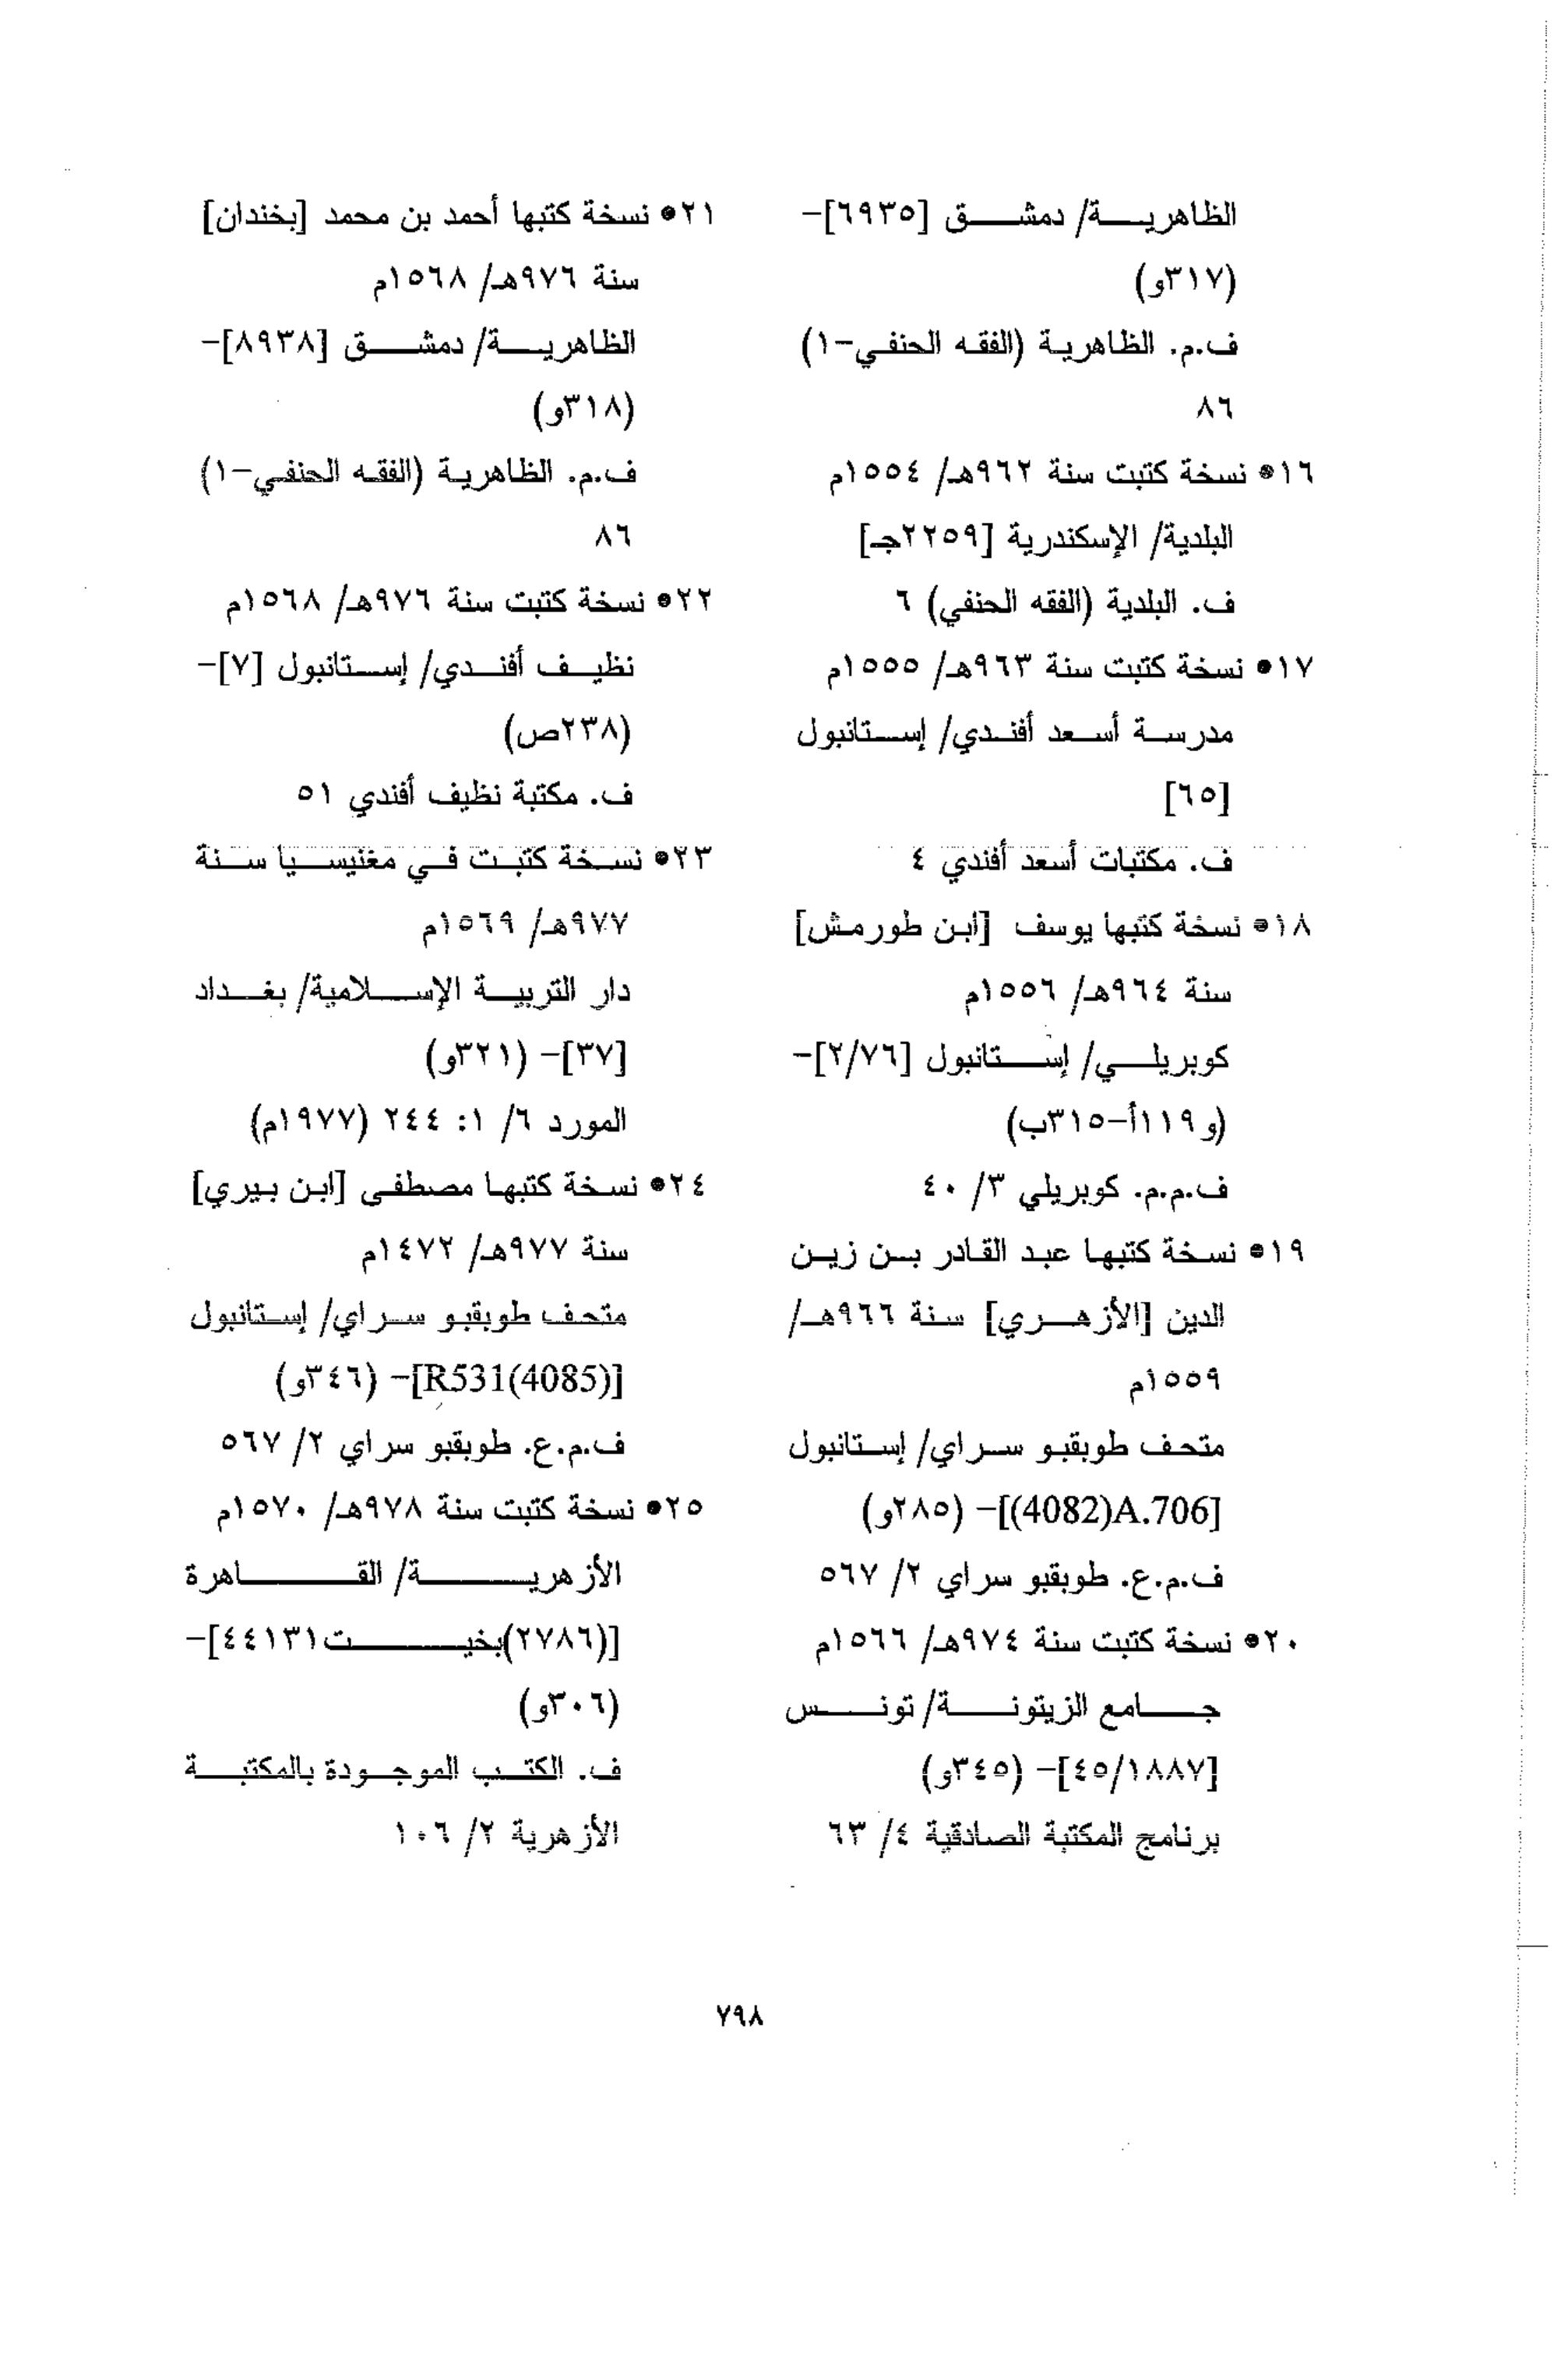 الظاهرية/ دمشق [٦٩٣٥]-
(٣١٧و)
ف.م. الظاهرية (الفقه الحنفي-١)
٨٦
١٦• نسخة كتبت سنة ٩٦٢هـ/ ١٥٥٤م
البلدية/ الإسكندرية [٢٢٥٩جـ]
ف. البلدية (الفقه الحنفي) ٦
١٧• نسخة كتبت سنة ٩٦٣هـ/ ١٥٥٥م
مدرسة أسعد أفندي/ إستانبول
[٦٥]
ف. مكتبات أسعد أفندي ٤
١٨• نسخة كتبها يوسف [ابن طورمش]
سنة ٩٦٤هـ/ ١٥٥٦م
كوبريلي/ إستانبول [٢/٧٦]-
(و١١٩أ-٣١٥ب)
ف.م.م. كوبريلي ٣/ ٤٠
١٩• نسخة كتبها عبد القادر بن زين
الدين [الأزهري] سنة ٩٦٦هـ/
١٥٥٩م
متحف طوبقبو سراي/ إستانبول
[A.706(4082)]- (٢٨٥و)
ف.م.ع. طوبقبو سراي ٢/ ٥٦٧
٢٠• نسخة كتبت سنة ٩٧٤هـ/ ١٥٦٦م
جامع الزيتونة/ تونس
[٤٥/١٨٨٧]- (٣٤٥و)
برنامج المكتبة الصادقية ٤/ ٦٣
٢١• نسخة كتبها أحمد بن محمد [بخندان]
سنة ٩٧٦هـ/ ١٥٦٨م
الظاهرية/ دمشق [٨٩٣٨]-
(٣١٨و)
ف.م. الظاهرية (الفقه الحنفي-١)
٨٦
٢٢• نسخة كتبت سنة ٩٧٦هـ/ ١٥٦٨م
نظيف أفندي/ إستانبول [٧]-
(٢٣٨ص)
ف. مكتبة نظيف أفندي ٥١
٢٣• نسخة كتبت في مغنيسيا سنة
٩٧٧هـ/ ١٥٦٩م
دار التربية الإسلامية/ بغداد
[٣٧]- (٣٢١و)
المورد ٦/ ١: ٢٤٤ (١٩٧٧م)
٢٤• نسخة كتبها مصطفى [ابن بيري]
سنة ٩٧٧هـ/ ١٤٧٢م
متحف طوبقبو سراي/ إستانبول
[R531(4085)]- (٣٤٦و)
ف.م.ع. طوبقبو سراي ٢/ ٥٦٧
٢٥• نسخة كتبت سنة ٩٧٨هـ/ ١٥٧٠م
الأزهرية/ القاهرة
[(٢٧٨٦)بخيت٤٤١٣١]-
(٣٠٦و)
ف. الكتب الموجودة بالمكتبة
الأزهرية ٢/ ١٠٦
٧٩٨